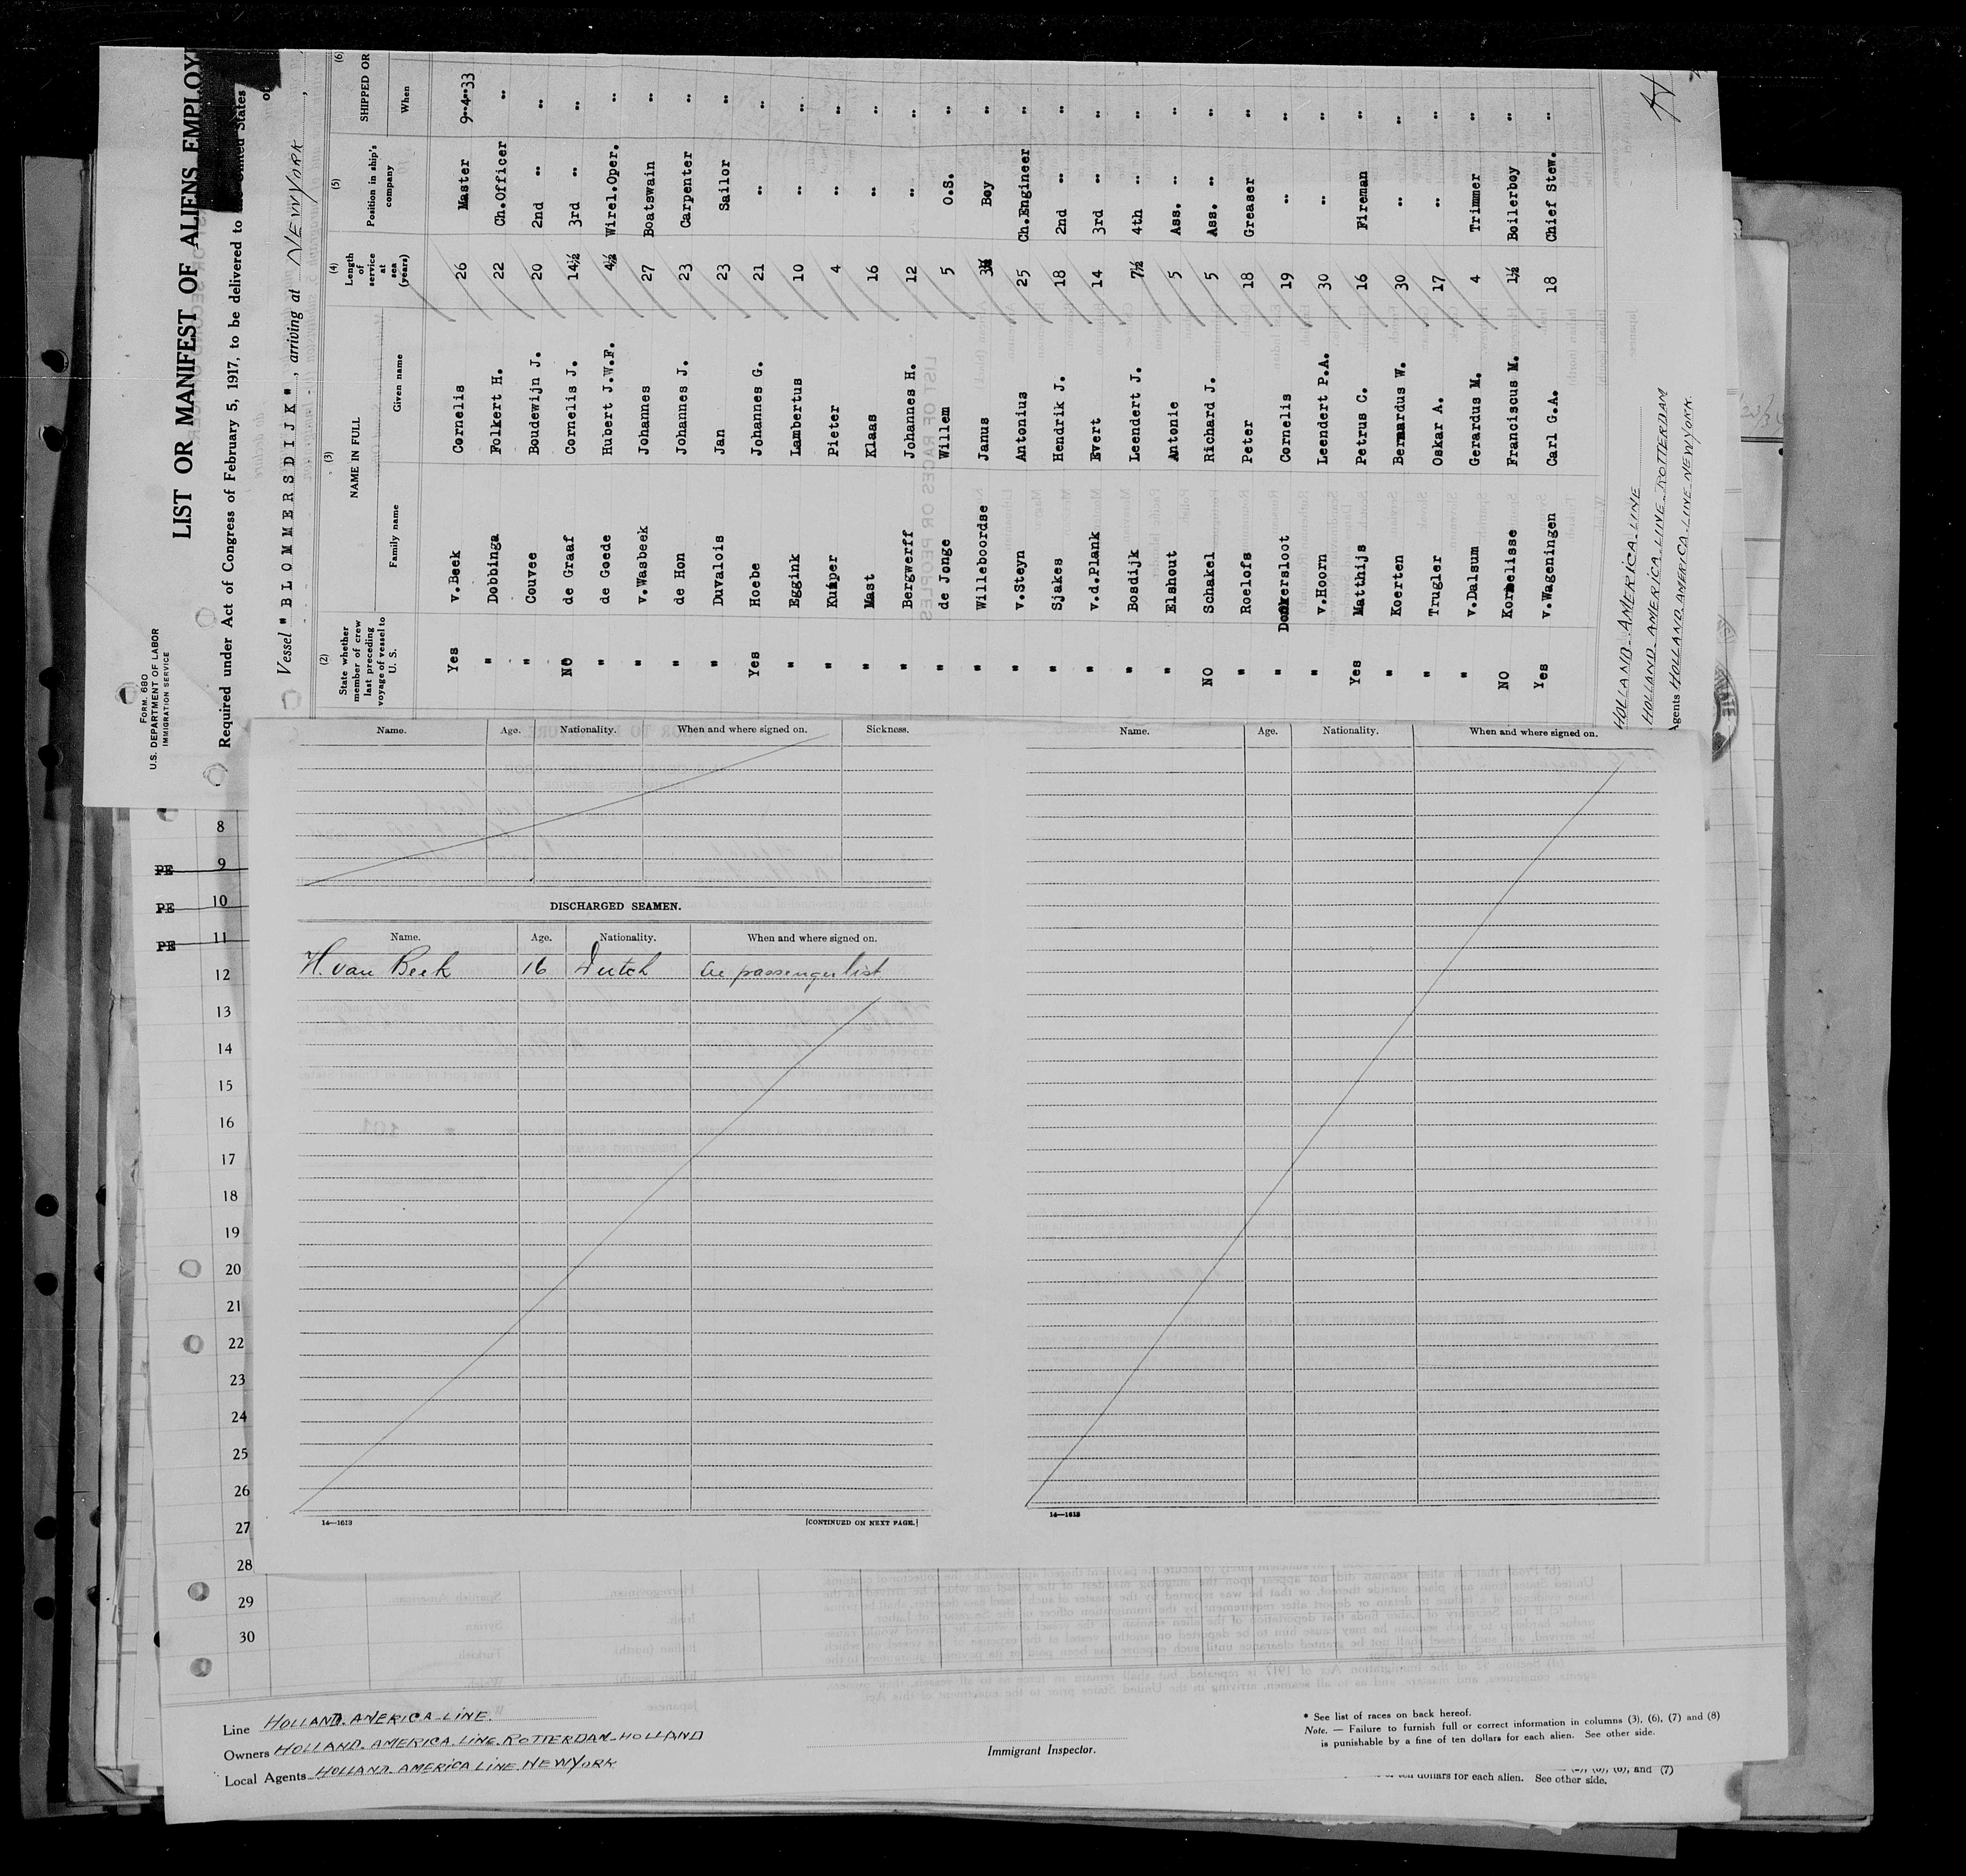 FORM 680
U.S. DEPARTMENT OF LABOR
IMMIGRATION SERVICE
LIST OR MANIFEST OF ALIENS EMPLOY
Required under Act of Congress of February 5, 1917, to be delivered to United States
Vessel "BLOMMERSDIJK", arriving at NEW YORK,
(2) (3) (4) (5) (6)
State whether member of crew last preceding voyage of vessel to U. S. NAME IN FULL Length of service at sea (years) Position in ship's company SHIPPED OR
Family name Given name When
Yes v.Beek Cornelis 26 Master 9-4-33
" Dobbinga Folkert H. 22 Ch.Officer "
" Couvee Boudewijn J. 20 2nd " "
NO de Graaf Cornelis J. 14½ 3rd " "
" de Goede Hubert J.W.F. 4½ Wirel.Oper. "
" v.Wasbeek Johannes 27 Boatswain "
" de Hon Johannes J. 23 Carpenter "
" Duvalois Jan 23 Sailor "
Yes Hoebe Johannes G. 21 " "
" Eggink Lambertus 10 " "
" Kuiper Pieter 4 " "
" Mast Klaas 16 " "
" Bergwerff Johannes H. 12 " "
" de Jonge Willem 5 O.S. "
" Willeboordse Janus 3½ Boy "
" v.Steyn Antonius 25 Ch.Engineer "
" Sjakes Hendrik J. 18 2nd " "
" v.d.Plank Evert 14 3rd " "
" Bosdijk Leendert J. 7½ 4th " "
" Elshout Antonie 5 Ass. " "
NO Schakel Richard J. 5 Ass. " "
" Roelofs Peter 18 Greaser "
" Donkersloot Cornelis 19 " "
" v.Hoorn Leendert P.A. 30 " "
Yes Matthijs Petrus C. 16 Fireman "
" Koerten Bernardus W. 30 " "
" Trugler Oskar A. 17 " "
" v.Dalsum Gerardus M. 4 Trimmer "
NO Kornelisse Franciscus M. 1½ Boilerboy "
Yes v.Wageningen Carl G.A. 18 Chief Stew. "
HOLLAND-AMERICA-LINE
HOLLAND-AMERICA-LINE-ROTTERDAM
Agents HOLLAND-AMERICA-LINE-NEWYORK.
Name. Age. Nationality. When and where signed on. Sickness.
DISCHARGED SEAMEN.
Name. Age. Nationality. When and where signed on.
H. van Beek 16 Dutch as passenger list
14—1613 [CONTINUED ON NEXT PAGE.]
Name. Age. Nationality. When and where signed on.
14—1613
8
PE 9
PE 10
PE 11
12
13
14
15
16
17
18
19
20
21
22
23
24
25
26
27
28
29
30
Line HOLLAND.AMERICA-LINE.
Owners HOLLAND.AMERICA.LINE.ROTTERDAM-HOLLAND
Local Agents HOLLAND.AMERICA LINE.NEWYORK
Immigrant Inspector.
* See list of races on back hereof.
Note. — Failure to furnish full or correct information in columns (3), (6), (7) and (8)
is punishable by a fine of ten dollars for each alien. See other side.
(6), and (7)
dollars for each alien. See other side.